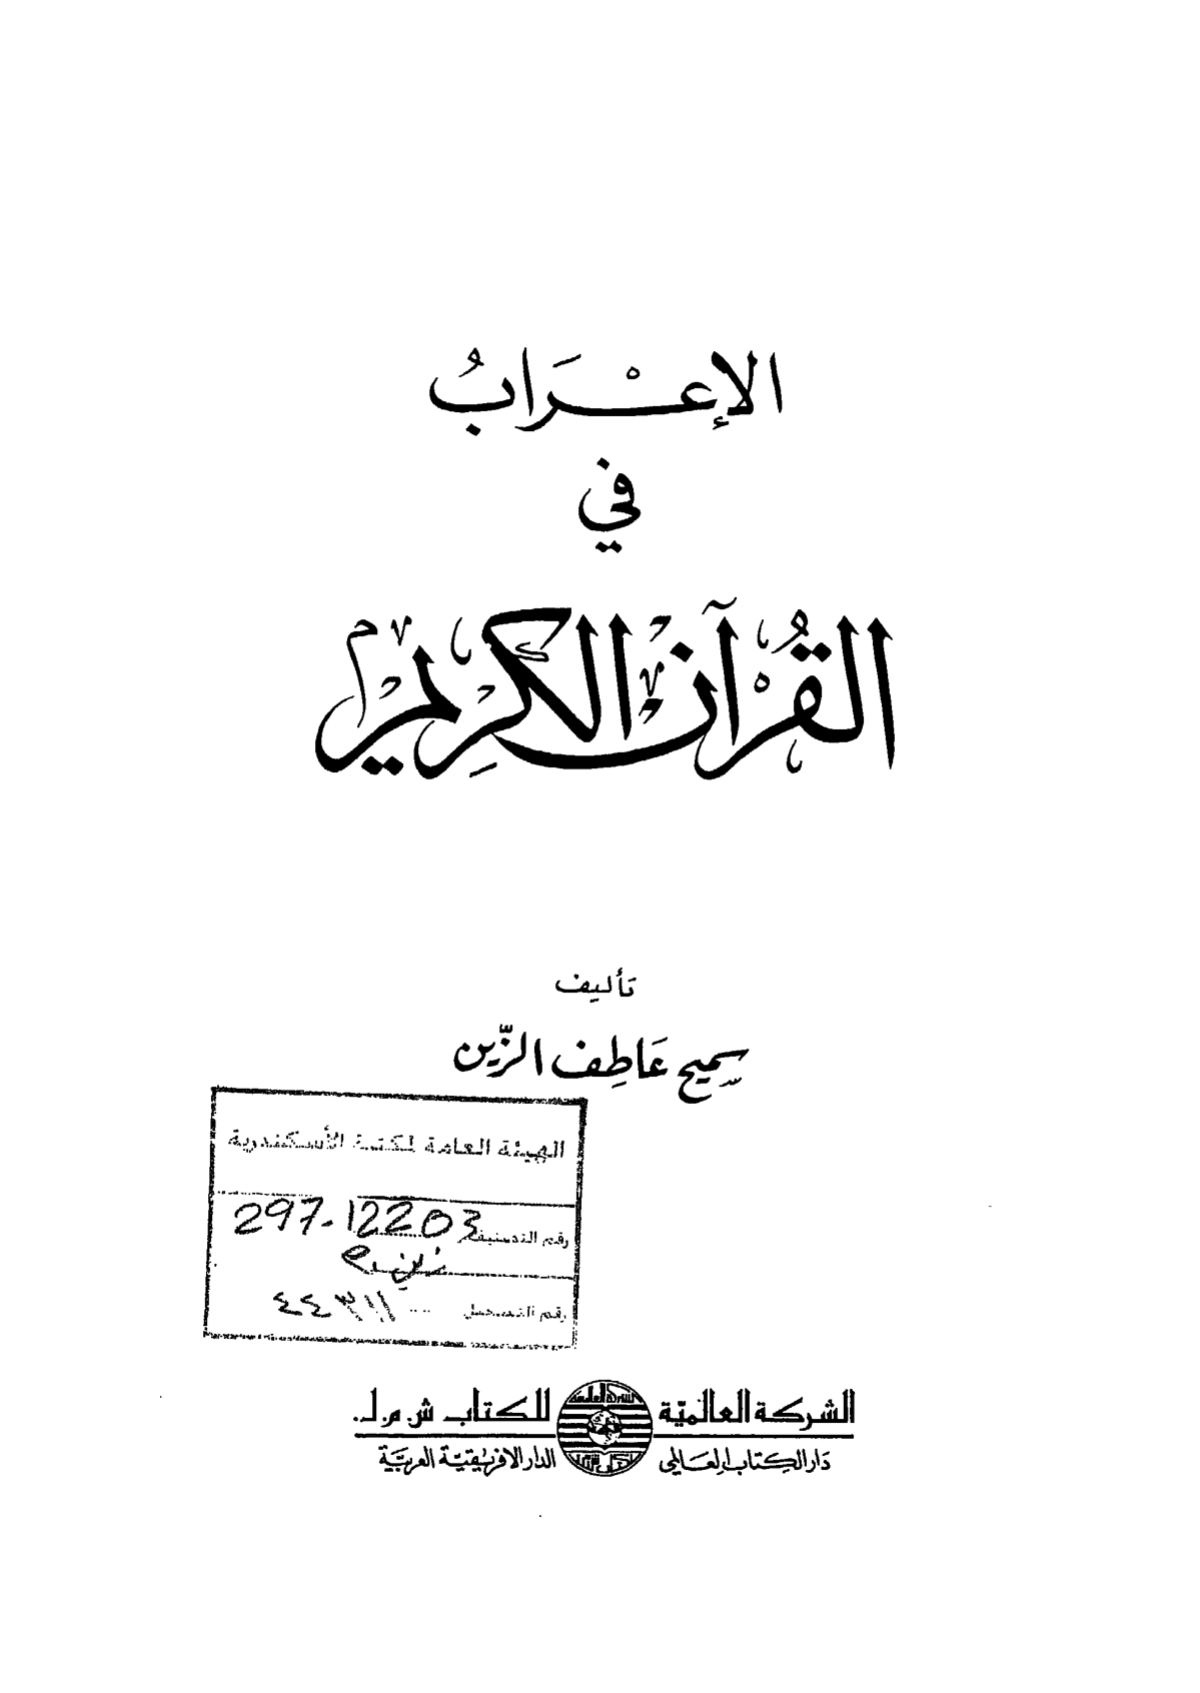 الإعْرَابُ
في
القُرآن الكَرِيم
تأليف
سميح عَاطِف الزَّين
الهيئة العامة لمكتبة الأسكندرية
297.12203 رقم التصنيف
زين
٤٤٣١١ رقم التسجيل
الشركة العالميّة للكتاب ش.م.ل.
دَار الكِتاب العَالمي الدار الافريقيّة العربيّة